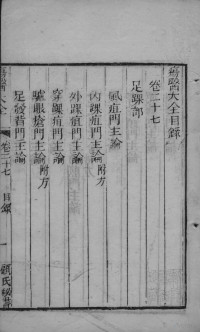 瘍醫大全目錄
卷二十七
足踝部
氣疽門主論
內踝疽門主論附方
外踝疽門主論
穿踝疽門主論
驢眼瘡門主論附方
足發背門主論
大全
卷二十七
目錄
一
顧氏秘書